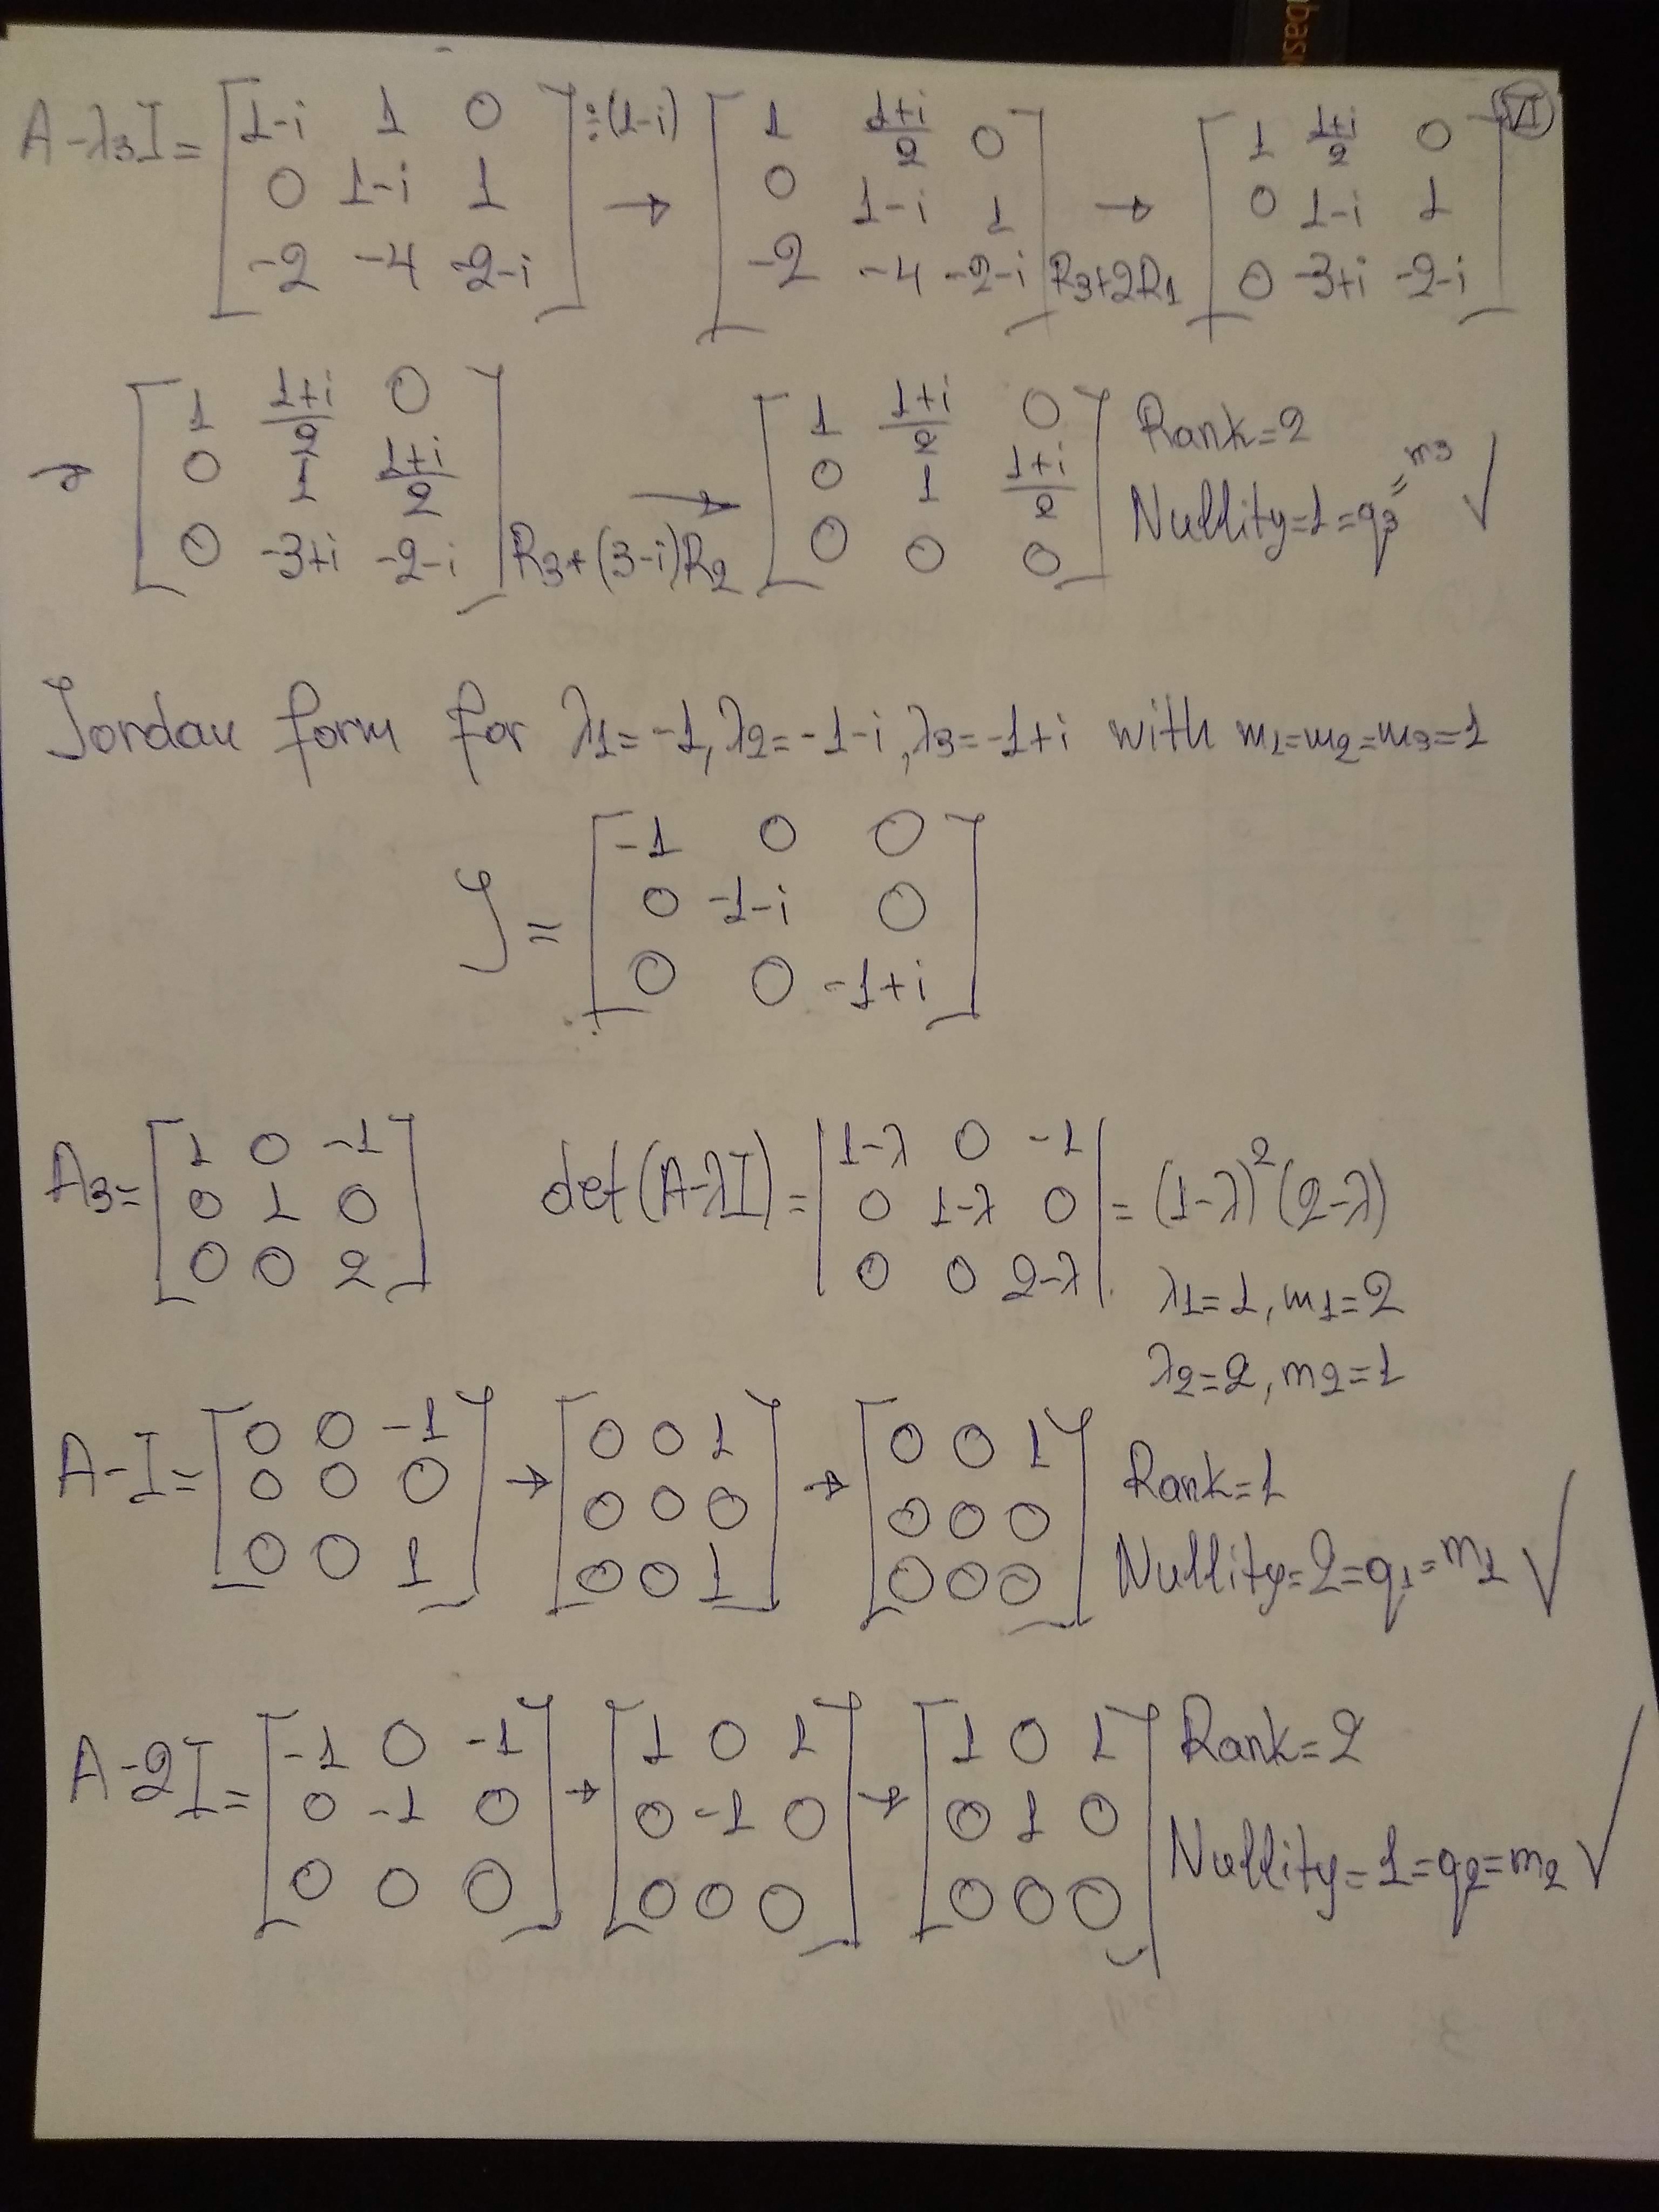 basi
VI
A-λ₃I = [1-i 1 0; 0 1-i 1; -2 -4 -2-i] ÷(1-i) → [1 (1+i)/2 0; 0 1-i 1; -2 -4 -2-i] R₃+2R₁ → [1 (1+i)/2 0; 0 1-i 1; 0 -3+i -2-i]
→ [1 (1+i)/2 0; 0 1 (1+i)/2; 0 -3+i -2-i] R₃+(3-i)R₂ → [1 (1+i)/2 0; 0 1 (1+i)/2; 0 0 0] Rank=2
Nullity=1=q₃=m₃ ✓
Jordan form for λ₁=-1, λ₂=-1-i, λ₃=-1+i with m₁=m₂=m₃=1
J = [-1 0 0; 0 -1-i 0; 0 0 -1+i]
A₃ = [1 0 -1; 0 1 0; 0 0 2] det(A-λI) = |1-λ 0 -1; 0 1-λ 0; 0 0 2-λ| = (1-λ)²(2-λ)
λ₁=1, m₁=2
λ₂=2, m₂=1
A-I = [0 0 -1; 0 0 0; 0 0 1] → [0 0 1; 0 0 0; 0 0 1] → [0 0 1; 0 0 0; 0 0 0] Rank=1
Nullity=2=q₁=m₁ ✓
A-2I = [-1 0 -1; 0 -1 0; 0 0 0] → [1 0 1; 0 -1 0; 0 0 0] → [1 0 1; 0 1 0; 0 0 0] Rank=2
Nullity=1=q₂=m₂ ✓